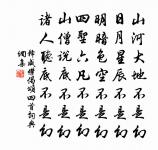 山河大地不是幻
日月星辰不是幻
明暗色空不是幻
四聖六凡不是幻
山僧說底不是幻
諸人聽底不是幻
釋咸傑偈頌四首詞典
網集